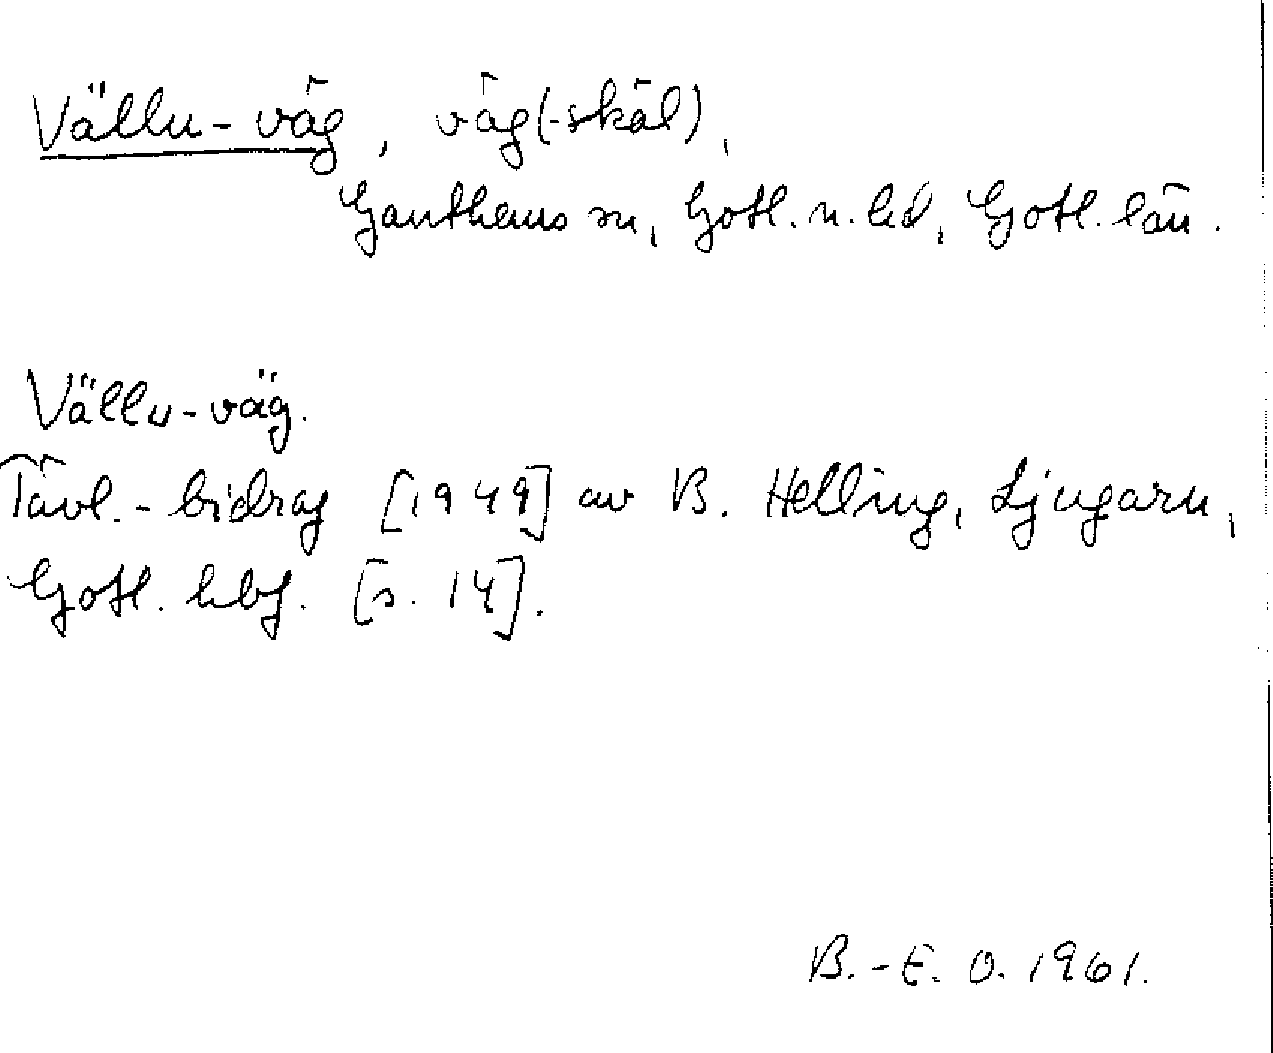 Vällu-väg, väg(-skäl),
Ganthems sn, Gotl. n. hd, Gotl. län.
Vällu-väg.
Tävl.-bidrag [1949] av B. Helling, Ljugarn,
Gotl. hbf. [s. 14].
B.-E. O. 1961.